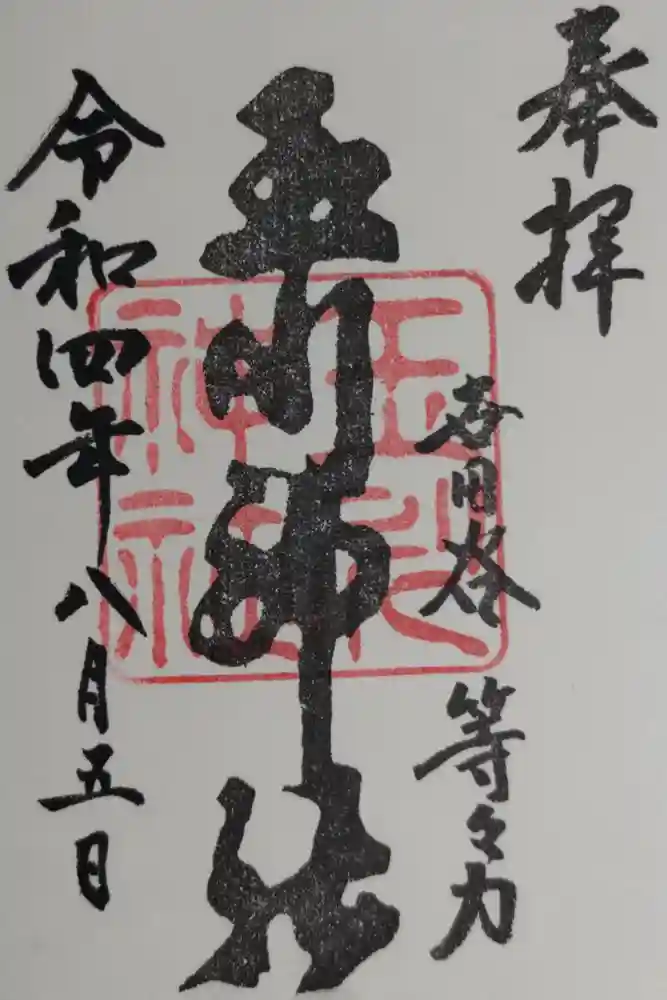 奉拝
世田谷 等々力
玉川神社
玉川神社
令和四年八月五日